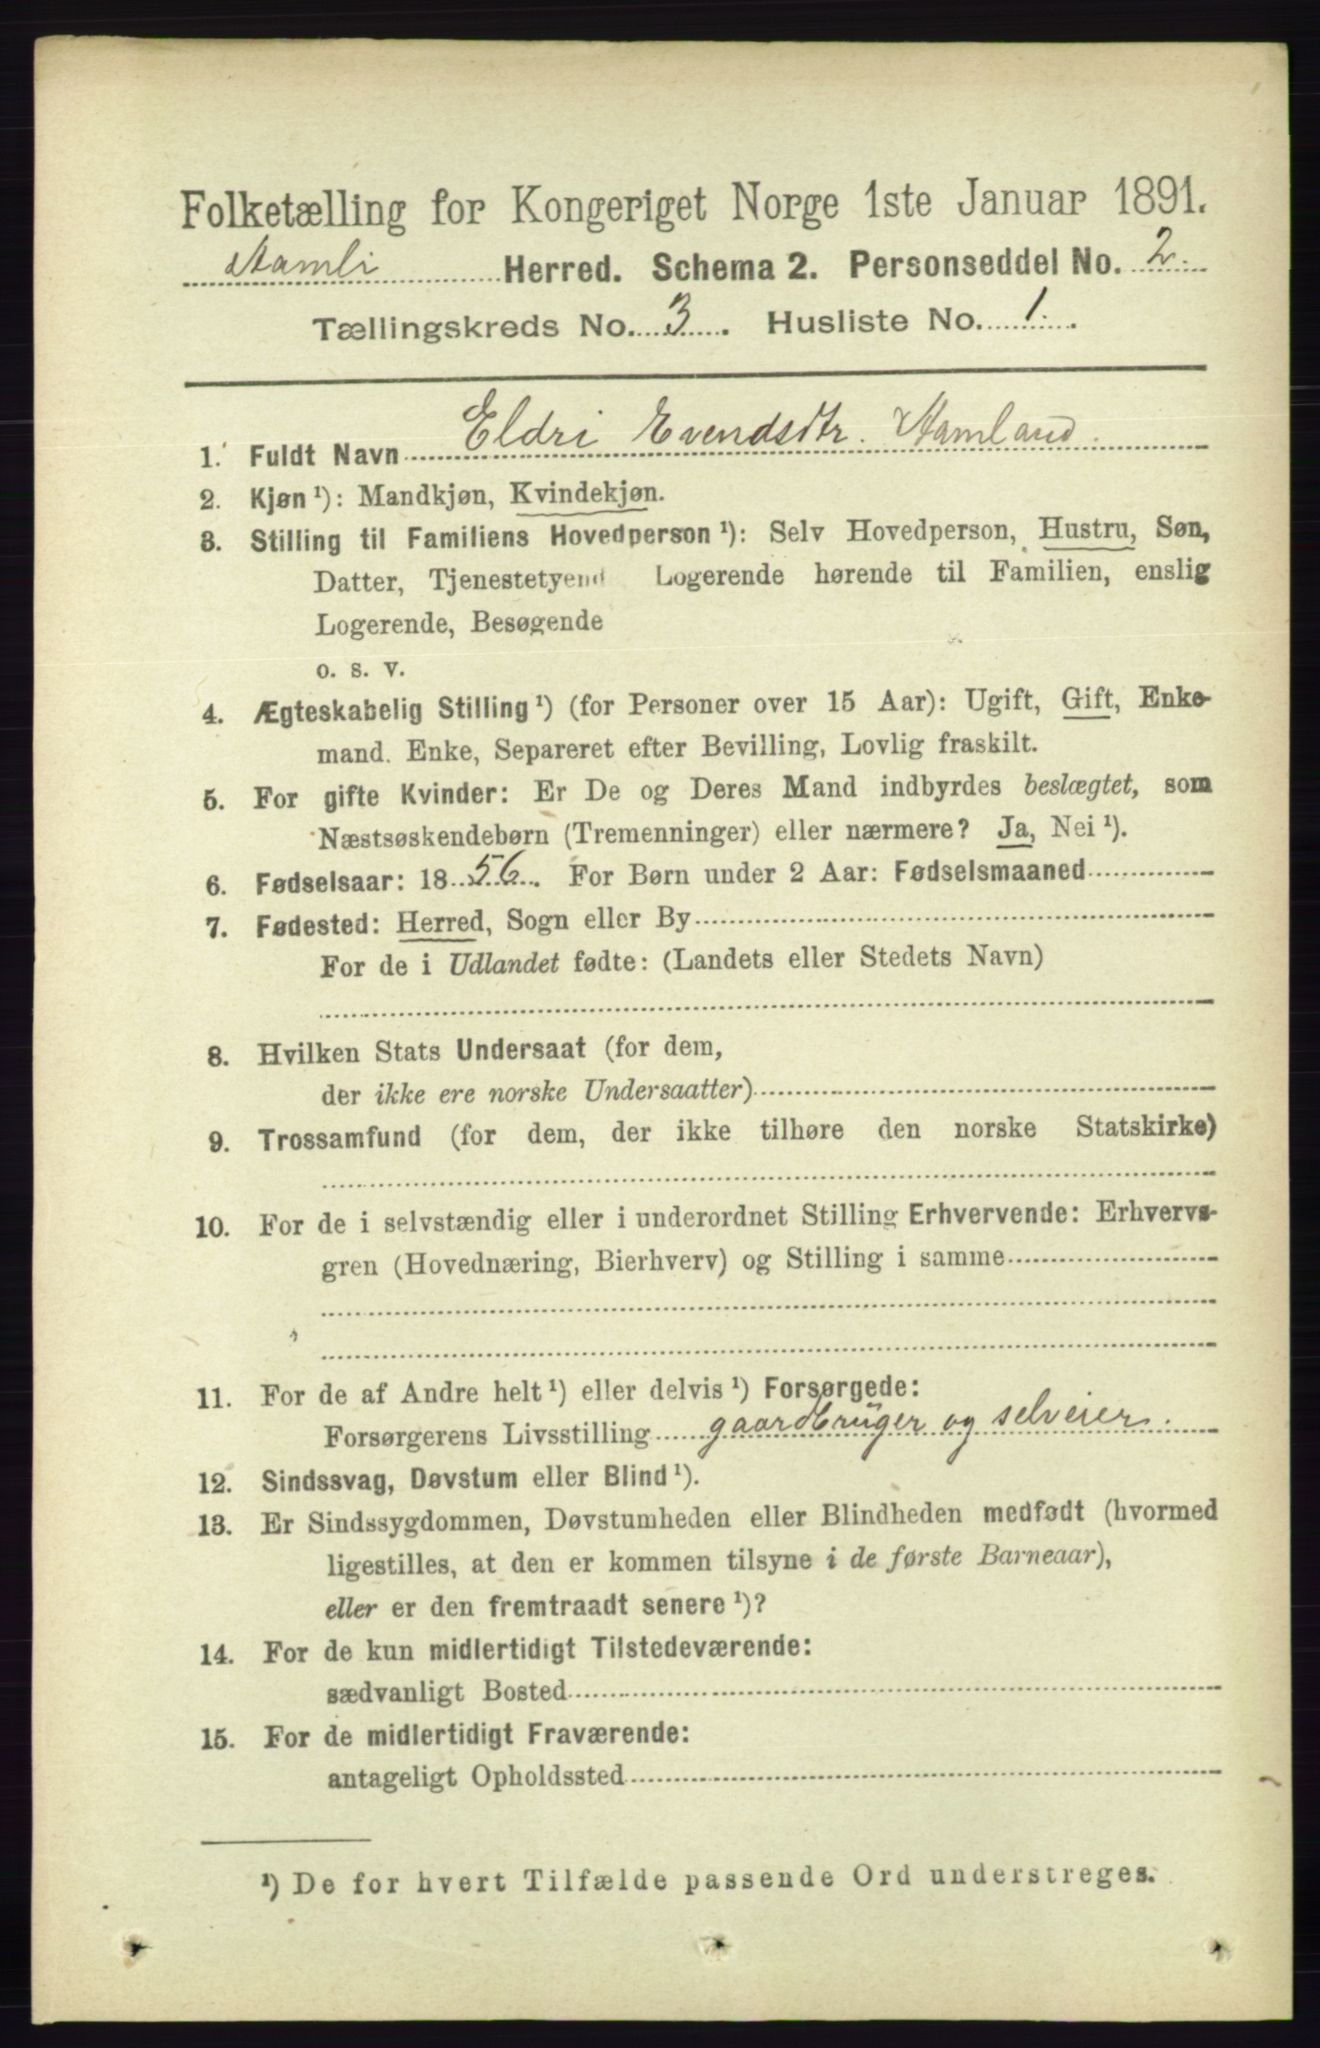 Folketælling for Kongeriget Norge 1ste Januar 1891.
Aamli Herred. Schema 2. Personseddel No. 2.
Tællingskreds No. 3. Husliste No. 1.
1. Fuldt Navn Eldri Evendsdtr. Aamland.
2. Kjøn ¹): Mandkjøn, Kvindekjøn.
3. Stilling til Familiens Hovedperson ¹): Selv Hovedperson, Hustru, Søn,
Datter, Tjenestetyend Logerende hørende til Familien, enslig
Logerende, Besøgende
o. s. v.
4. Ægteskabelig Stilling ¹) (for Personer over 15 Aar): Ugift, Gift, Enke-
mand. Enke, Separeret efter Bevilling, Lovlig fraskilt.
5. For gifte Kvinder: Er De og Deres Mand indbyrdes beslægtet, som
Næstsøskendebørn (Tremenninger) eller nærmere? Ja, Nei ¹).
6. Fødselsaar: 1856. For Børn under 2 Aar: Fødselsmaaned
7. Fødested: Herred, Sogn eller By
For de i Udlandet fødte: (Landets eller Stedets Navn)
8. Hvilken Stats Undersaat (for dem,
der ikke ere norske Undersaatter)
9. Trossamfund (for dem, der ikke tilhøre den norske Statskirke)
10. For de i selvstændig eller i underordnet Stilling Erhvervende: Erhvervs-
gren (Hovednæring, Bierhverv) og Stilling i samme
11. For de af Andre helt ¹) eller delvis ¹) Forsørgede:
Forsørgerens Livsstilling gaardbruger og selveier.
12. Sindssvag, Døvstum eller Blind ¹).
13. Er Sindssygdommen, Døvstumheden eller Blindheden medfødt (hvormed
ligestilles, at den er kommen tilsyne i de første Barneaar),
eller er den fremtraadt senere ¹)?
14. For de kun midlertidigt Tilstedeværende:
sædvanligt Bosted
15. For de midlertidigt Fraværende:
antageligt Opholdssted
¹) De for hvert Tilfælde passende Ord understreges.